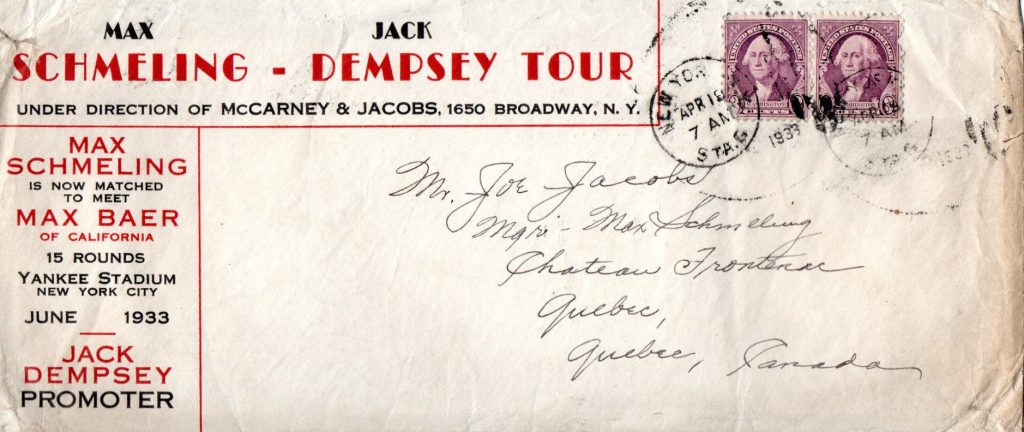 MAX JACK
SCHMELING - DEMPSEY TOUR
UNDER DIRECTION OF McCARNEY & JACOBS, 1650 BROADWAY, N. Y.
MAX
SCHMELING
IS NOW MATCHED
TO MEET
MAX BAER
OF CALIFORNIA
15 ROUNDS
YANKEE STADIUM
NEW YORK CITY
JUNE 1933
JACK
DEMPSEY
PROMOTER
UNITED STATES POSTAGE
WASHINGTON
UNITED STATES POSTAGE
WASHINGTON
NEW YORK
APR 18
7 AM
1933
STA. G
7 AM
STA. G
Mr. Joe Jacobs
Mgr. - Max Schmeling
Chateau Frontenac
Quebec,
Quebec, Canada